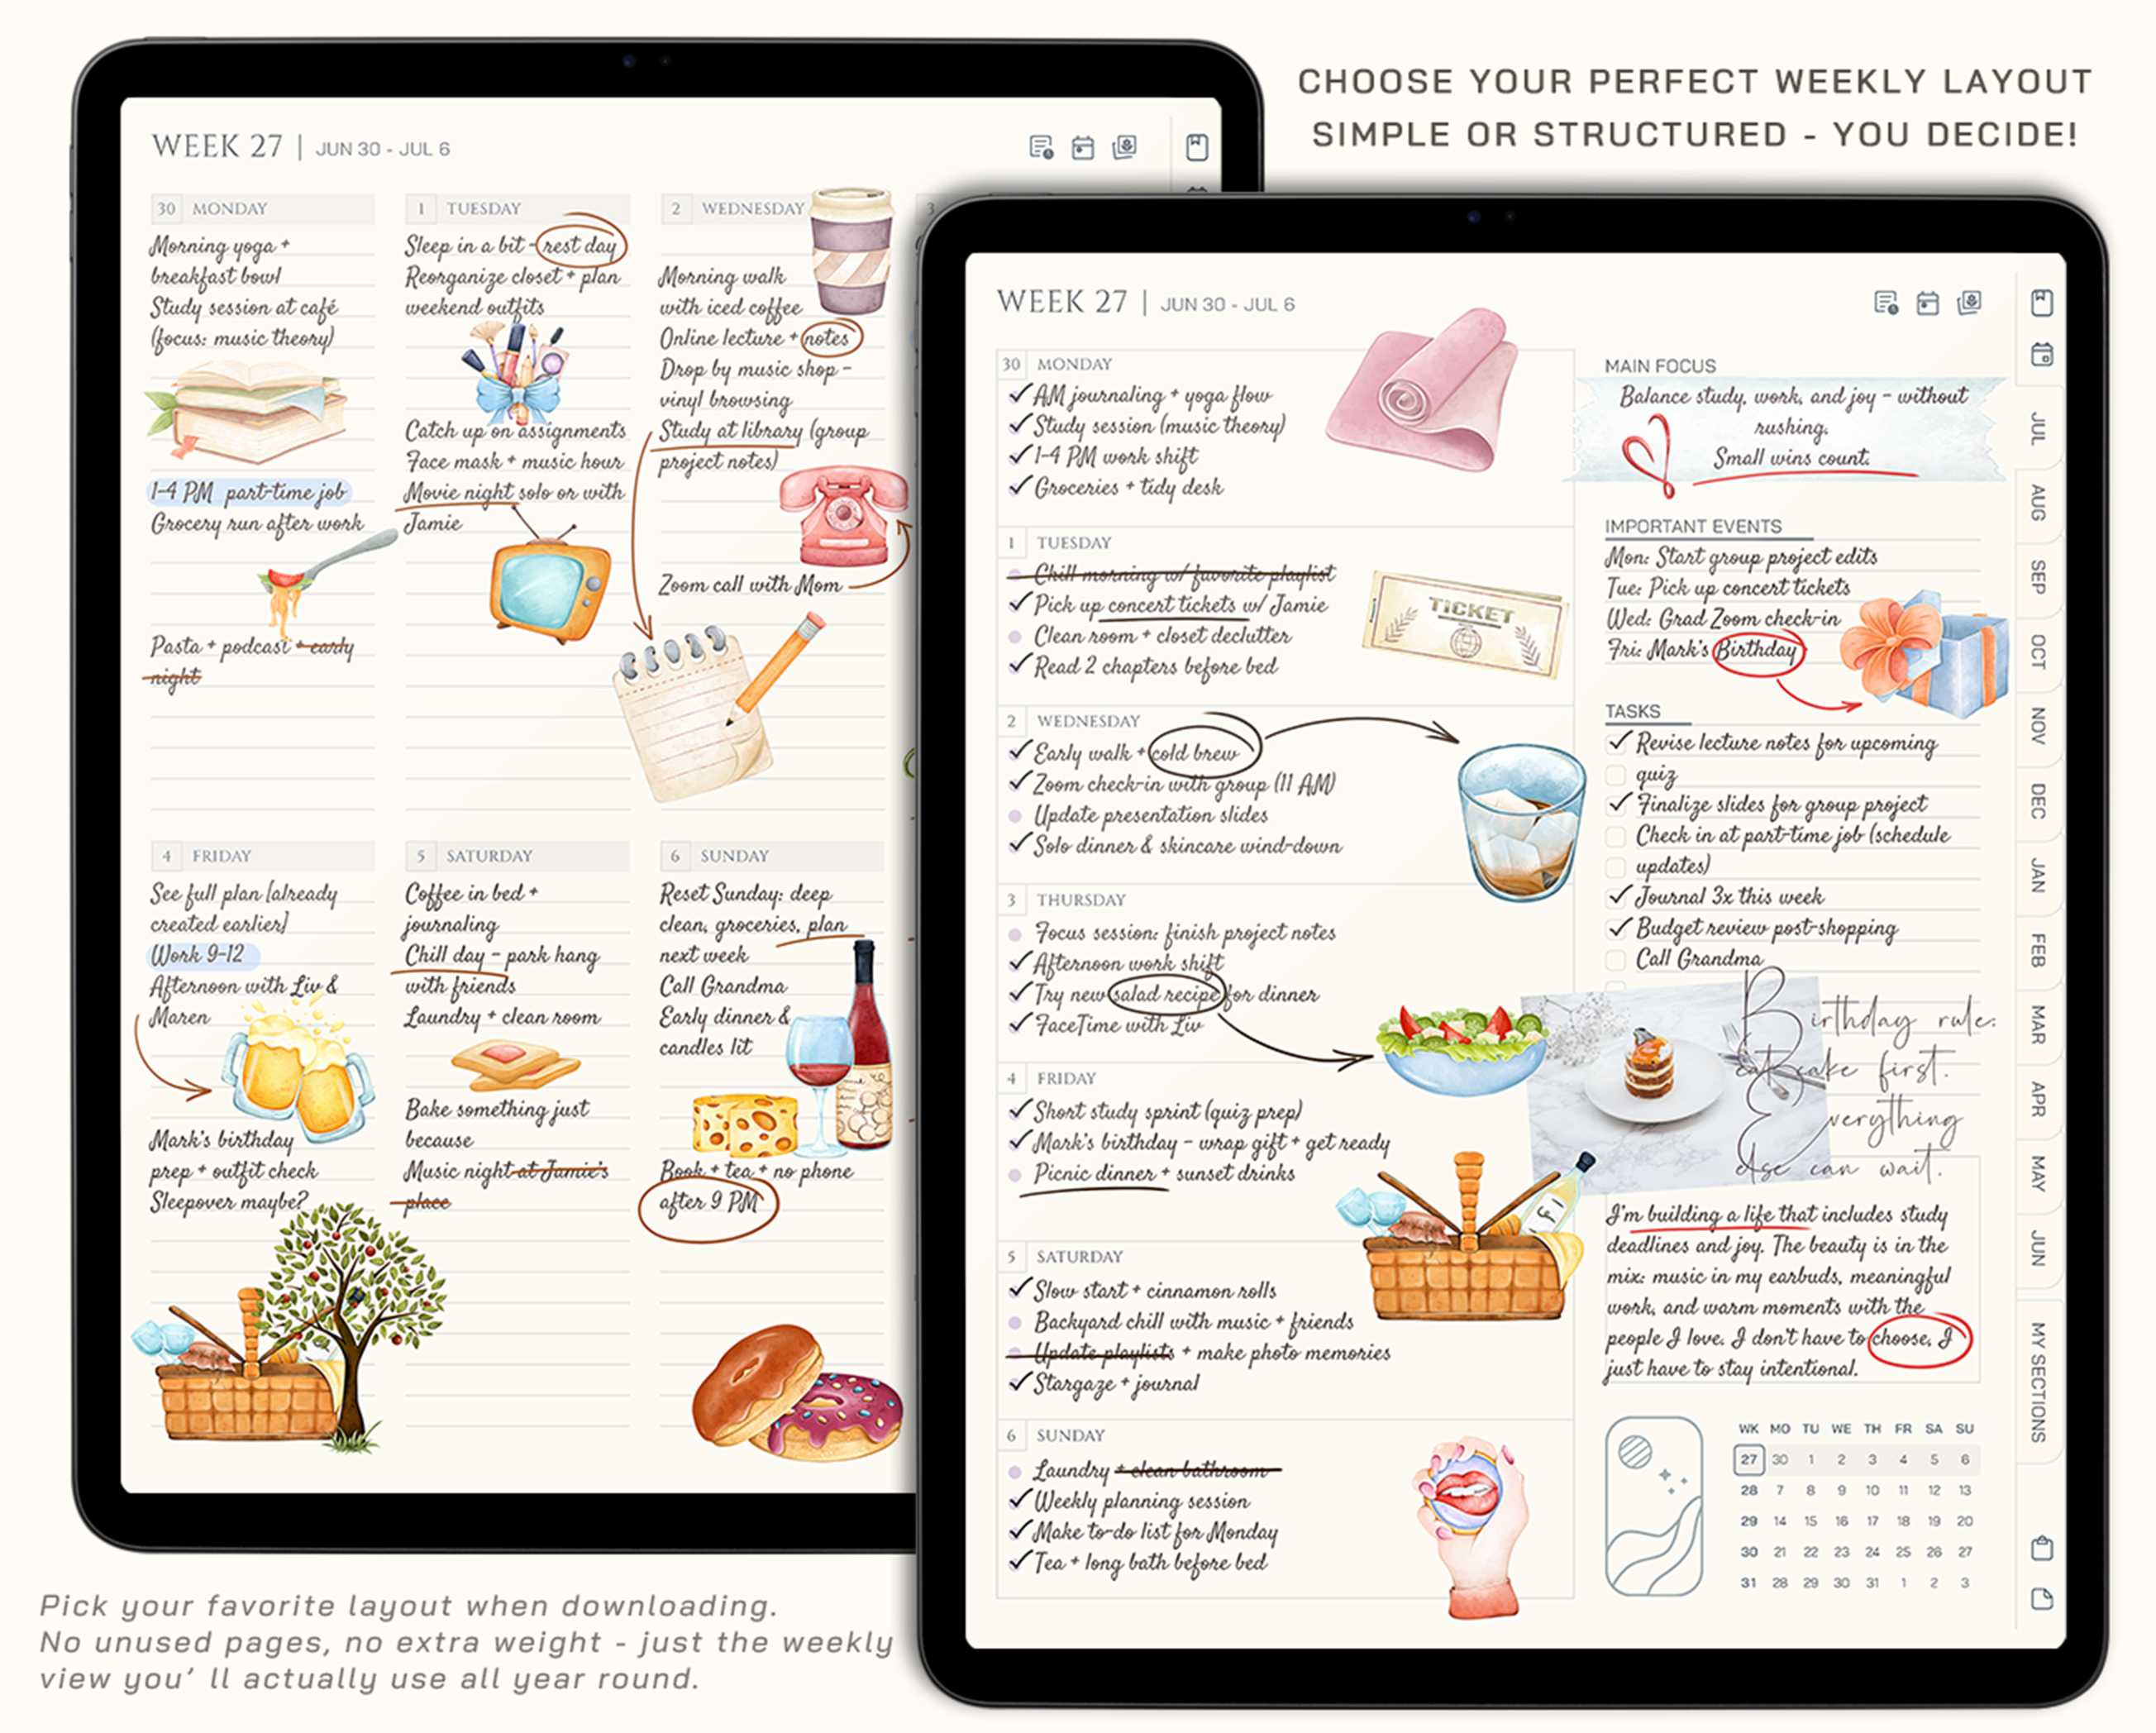 CHOOSE YOUR PERFECT WEEKLY LAYOUT
SIMPLE OR STRUCTURED - YOU DECIDE!
WEEK 27 | JUN 30 - JUL 6
30 MONDAY
Morning yoga +
breakfast bowl
Study session at café
(focus: music theory)
1-4 PM part-time job
Grocery run after work
Pasta + podcast + early
night
1 TUESDAY
Sleep in a bit - rest day
Reorganize closet + plan
weekend outfits
Catch up on assignments
Face mask + music hour
Movie night solo or with
Jamie
2 WEDNESDAY
Morning walk
with iced coffee
Online lecture + notes
Drop by music shop -
vinyl browsing
Study at library (group
project notes)
Zoom call with Mom
3
4 FRIDAY
See full plan [already
created earlier]
Work 9-12
Afternoon with Liv &
Maren
Mark's birthday
prep + outfit check
Sleepover maybe?
5 SATURDAY
Coffee in bed +
journaling
Chill day - park hang
with friends
Laundry + clean room
Bake something just
because
Music night at Jamie's
place
6 SUNDAY
Reset Sunday: deep
clean, groceries, plan
next week
Call Grandma
Early dinner &
candles lit
Book + tea + no phone
after 9 PM
WEEK 27 | JUN 30 - JUL 6
30 MONDAY
AM journaling + yoga flow
Study session (music theory)
1-4 PM work shift
Groceries + tidy desk
1 TUESDAY
Chill morning w/ favorite playlist
Pick up concert tickets w/ Jamie
Clean room + closet declutter
Read 2 chapters before bed
TICKET
2 WEDNESDAY
Early walk + cold brew
Zoom check-in with group (11 AM)
Update presentation slides
Solo dinner & skincare wind-down
3 THURSDAY
Focus session: finish project notes
Afternoon work shift
Try new salad recipe for dinner
FaceTime with Liv
4 FRIDAY
Short study sprint (quiz prep)
Mark's birthday - wrap gift + get ready
Picnic dinner + sunset drinks
5 SATURDAY
Slow start + cinnamon rolls
Backyard chill with music + friends
Update playlists + make photo memories
Stargaze + journal
6 SUNDAY
Laundry + clean bathroom
Weekly planning session
Make to-do list for Monday
Tea + long bath before bed
MAIN FOCUS
Balance study, work, and joy - without
rushing.
Small wins count.
IMPORTANT EVENTS
Mon: Start group project edits
Tue: Pick up concert tickets
Wed: Grad Zoom check-in
Fri: Mark's Birthday
TASKS
Revise lecture notes for upcoming
quiz
Finalize slides for group project
Check in at part-time job (schedule
updates)
Journal 3x this week
Budget review post-shopping
Call Grandma
Birthday rule:
eat cake first.
Everything
else can wait.
I'm building a life that includes study
deadlines and joy. The beauty is in the
mix: music in my earbuds, meaningful
work, and warm moments with the
people I love. I don't have to choose, I
just have to stay intentional.
WK MO TU WE TH FR SA SU
27 30 1 2 3 4 5 6
28 7 8 9 10 11 12 13
29 14 15 16 17 18 19 20
30 21 22 23 24 25 26 27
31 28 29 30 31 1 2 3
JUL
AUG
SEP
OCT
NOV
DEC
JAN
FEB
MAR
APR
MAY
JUN
MY SECTIONS
Pick your favorite layout when downloading.
No unused pages, no extra weight - just the weekly
view you' ll actually use all year round.